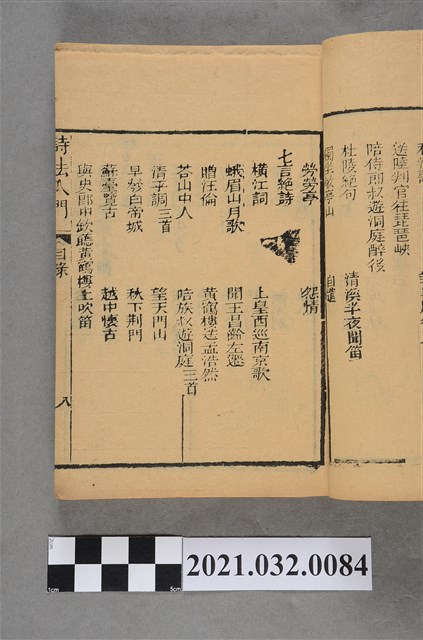 送陸判官往琵琶峽
陪侍郎叔遊洞庭醉後
杜陵絶句
清溪半夜聞笛
獨坐敬亭山
自遣
勞勞亭
怨情
七言絶詩
橫江詞
上皇西巡南京歌
蛾眉山月歌
聞王昌齡左遷
贈汪倫
黃鶴樓送孟浩然
荅山中人
陪族叔遊洞庭三首
清平調三首
望天門山
早發白帝城
秋下荆門
蘇臺覽古
越中懷古
與史郎中欽聽黃鶴樓上吹笛
詩法入門
目錄
八
1cm
5cm
2021.032.0084